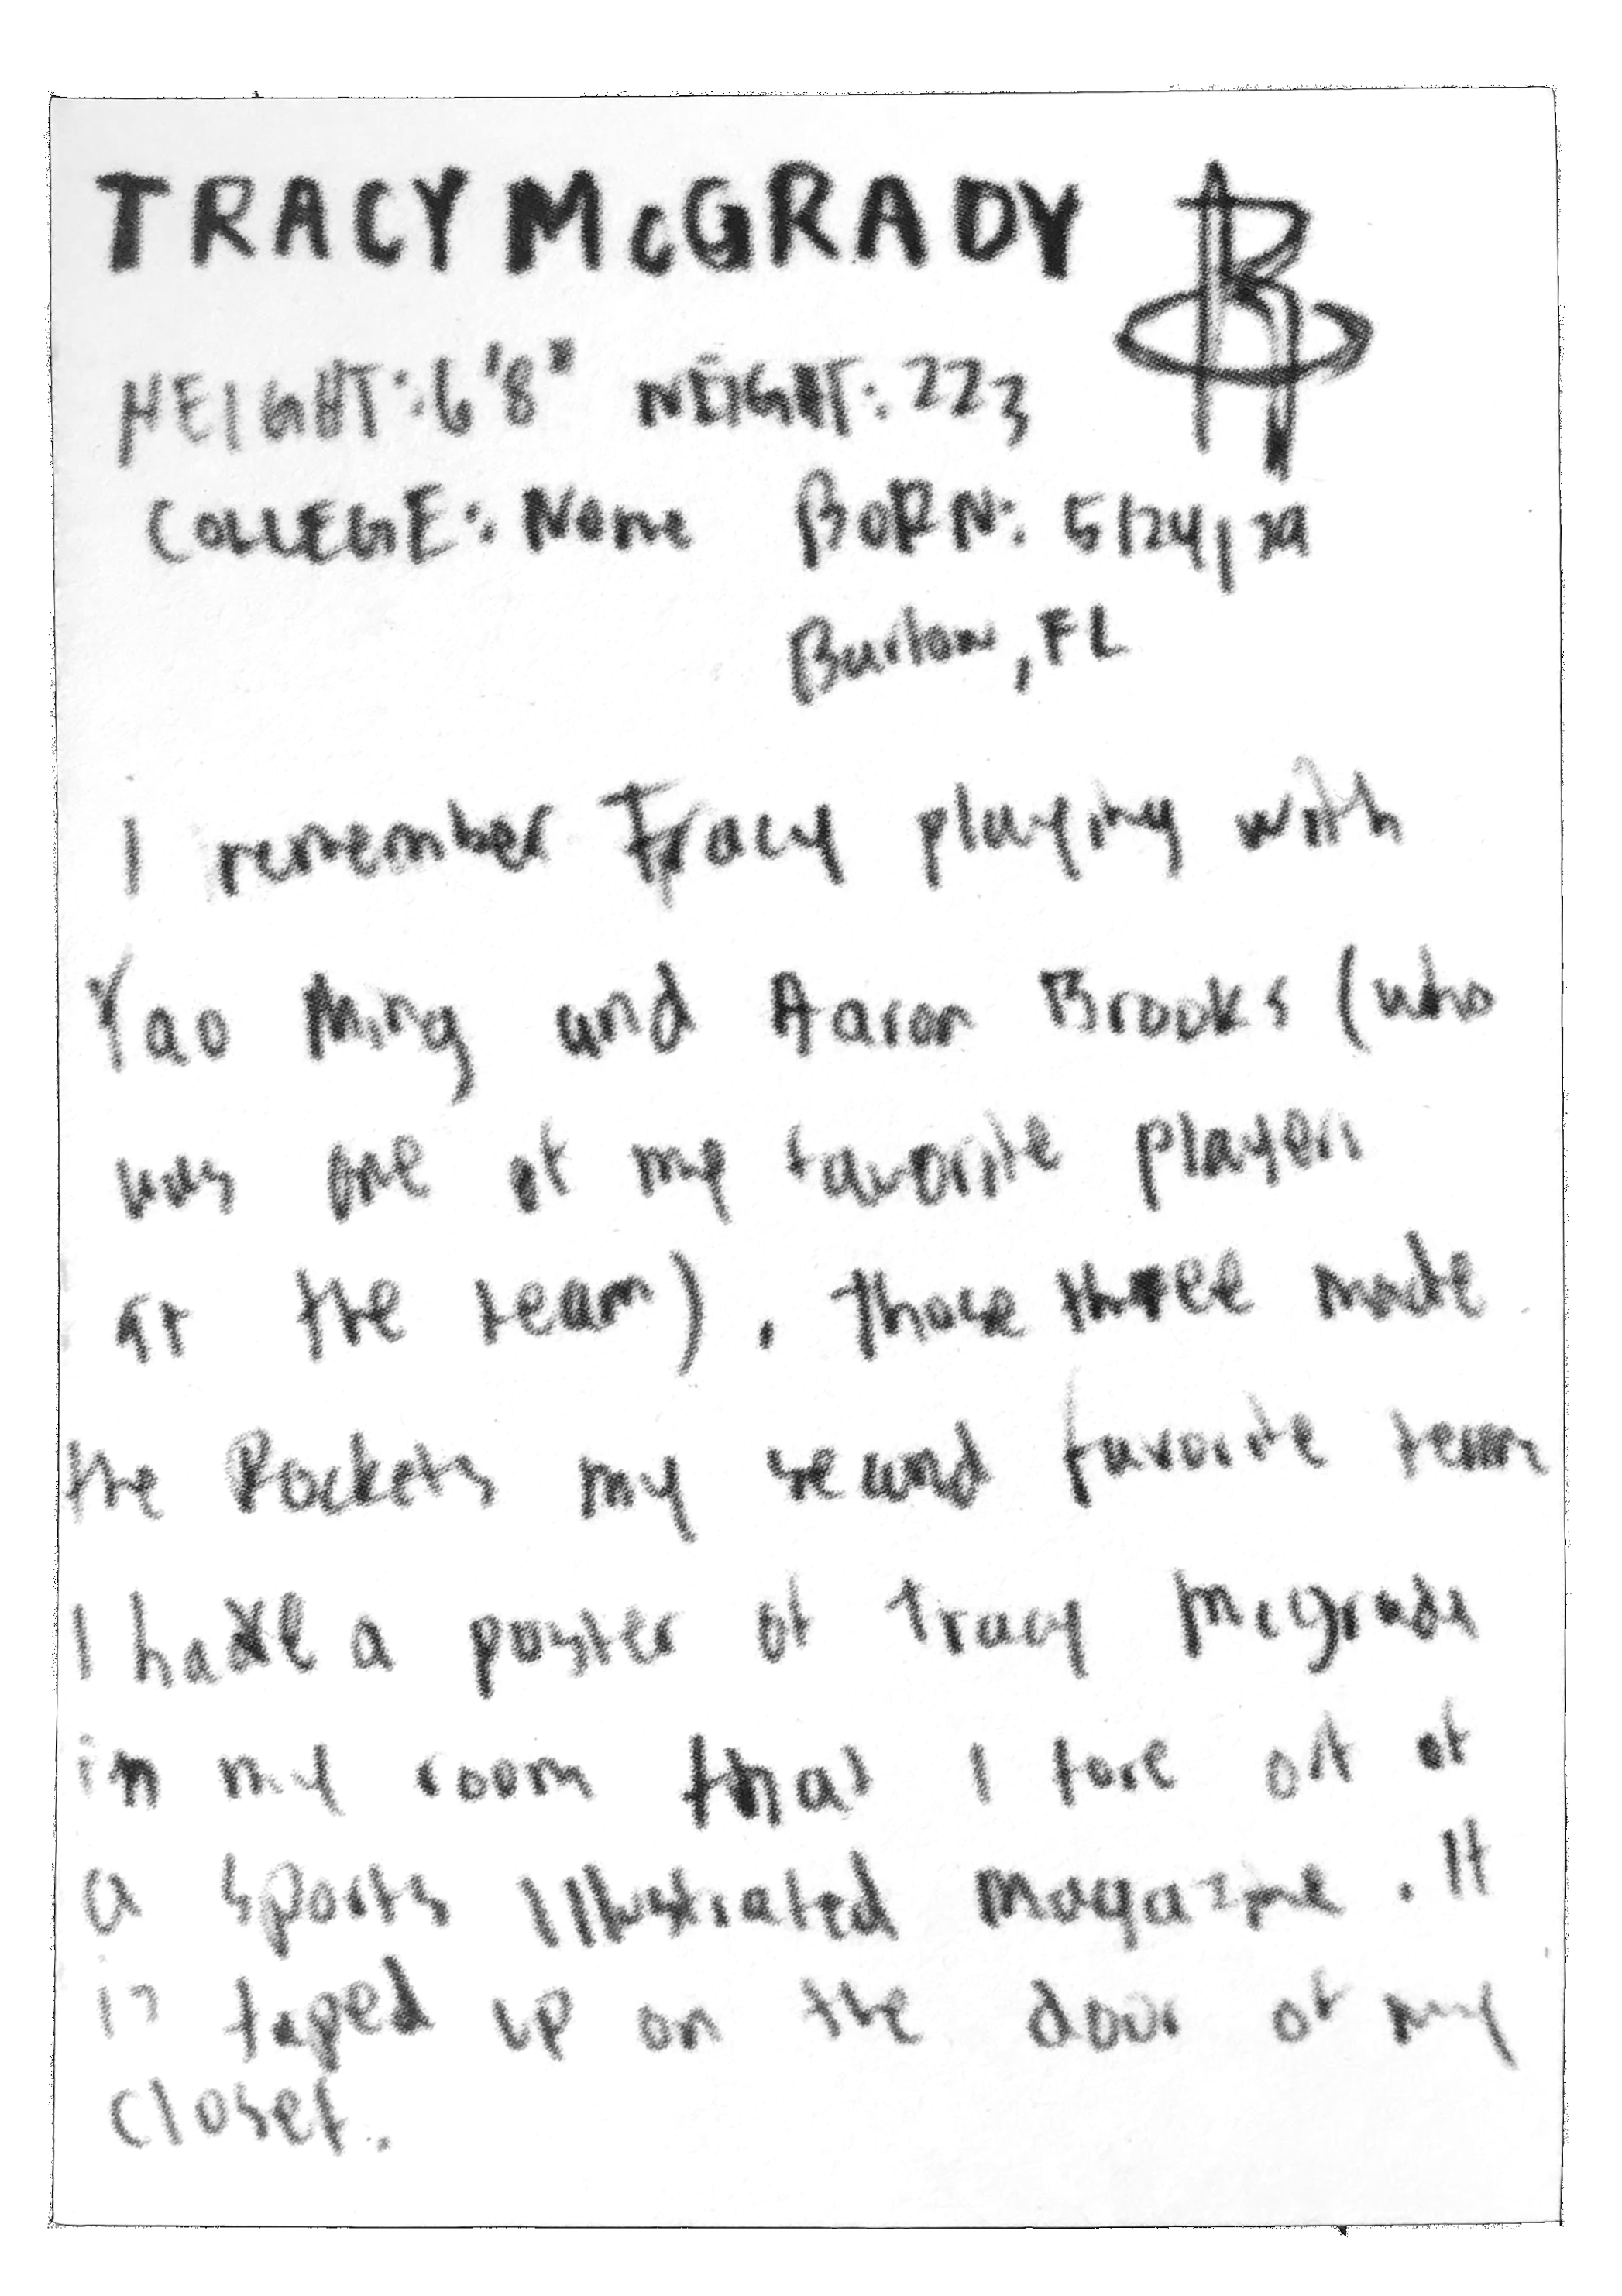 TRACY McGRADY
HEIGHT: 6'8" WEIGHT: 223
COLLEGE: None BORN: 5/24/79
Bartow, FL
I remember Tracy playing with
Yao Ming and Aaron Brooks (who
was one of my favorite players
at the team). Those three made
the Rockets my second favorite team
I have a poster of Tracy McGrady
in my room that I tore out of
a Sports Illustrated magazine. It
is taped up on the door of my
closet.